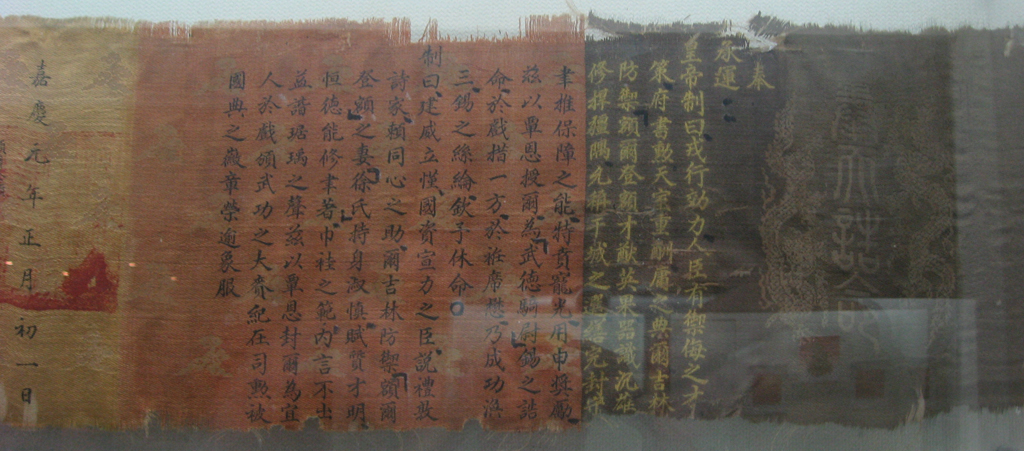 奉
承運
皇帝制曰戎行効力人臣有禦侮之才
策府書勲天室重酬庸之典爾吉林
防禦額爾登額才猷英果器識沉雄
修捍疆隅允稱干城之選
聿推保障之能特賁寵光用申獎勵
兹以覃恩授爾為武德騎尉錫之誥
命於戲揩一方於袵席懋乃成功浩
三錫之絲綸欽予休命
制曰建威立懂國資宣力之臣説禮敦
詩家頼同心之助爾吉林防禦額爾
登額之妻徐氏持身淑慎賦質才明
恒德能修聿著巾袿之範内言不出
益譜琚瑀之聲兹以覃恩封爾為宜
人於戲頌武功之大賚紀在司勲被
國典之徽章榮逾象服
嘉慶元年正月初一日